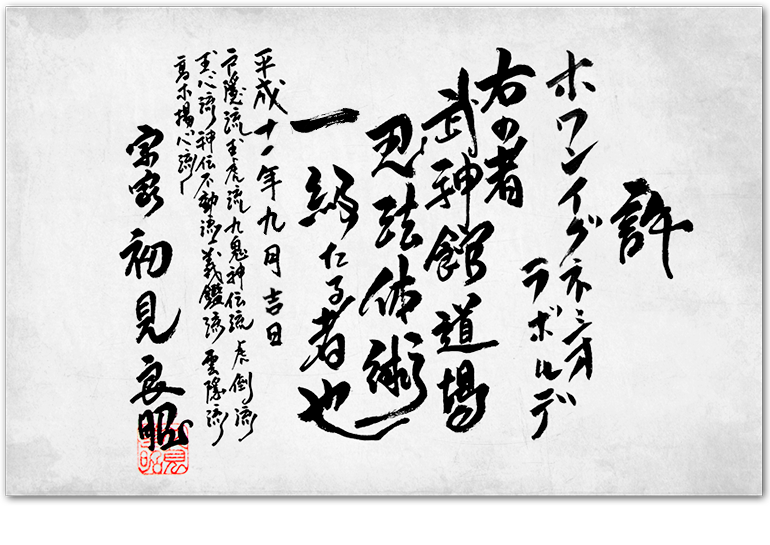 許
ホワンイグネシオ
ラボルデ
右の者
武神館道場
忍法体術
一級たる者也
平成十一年九月吉日
戸隠流玉虎流九鬼神伝流虎倒流
玉心流神伝不動流義鑑流雲隠流
高木揚心流
宗家初見良昭